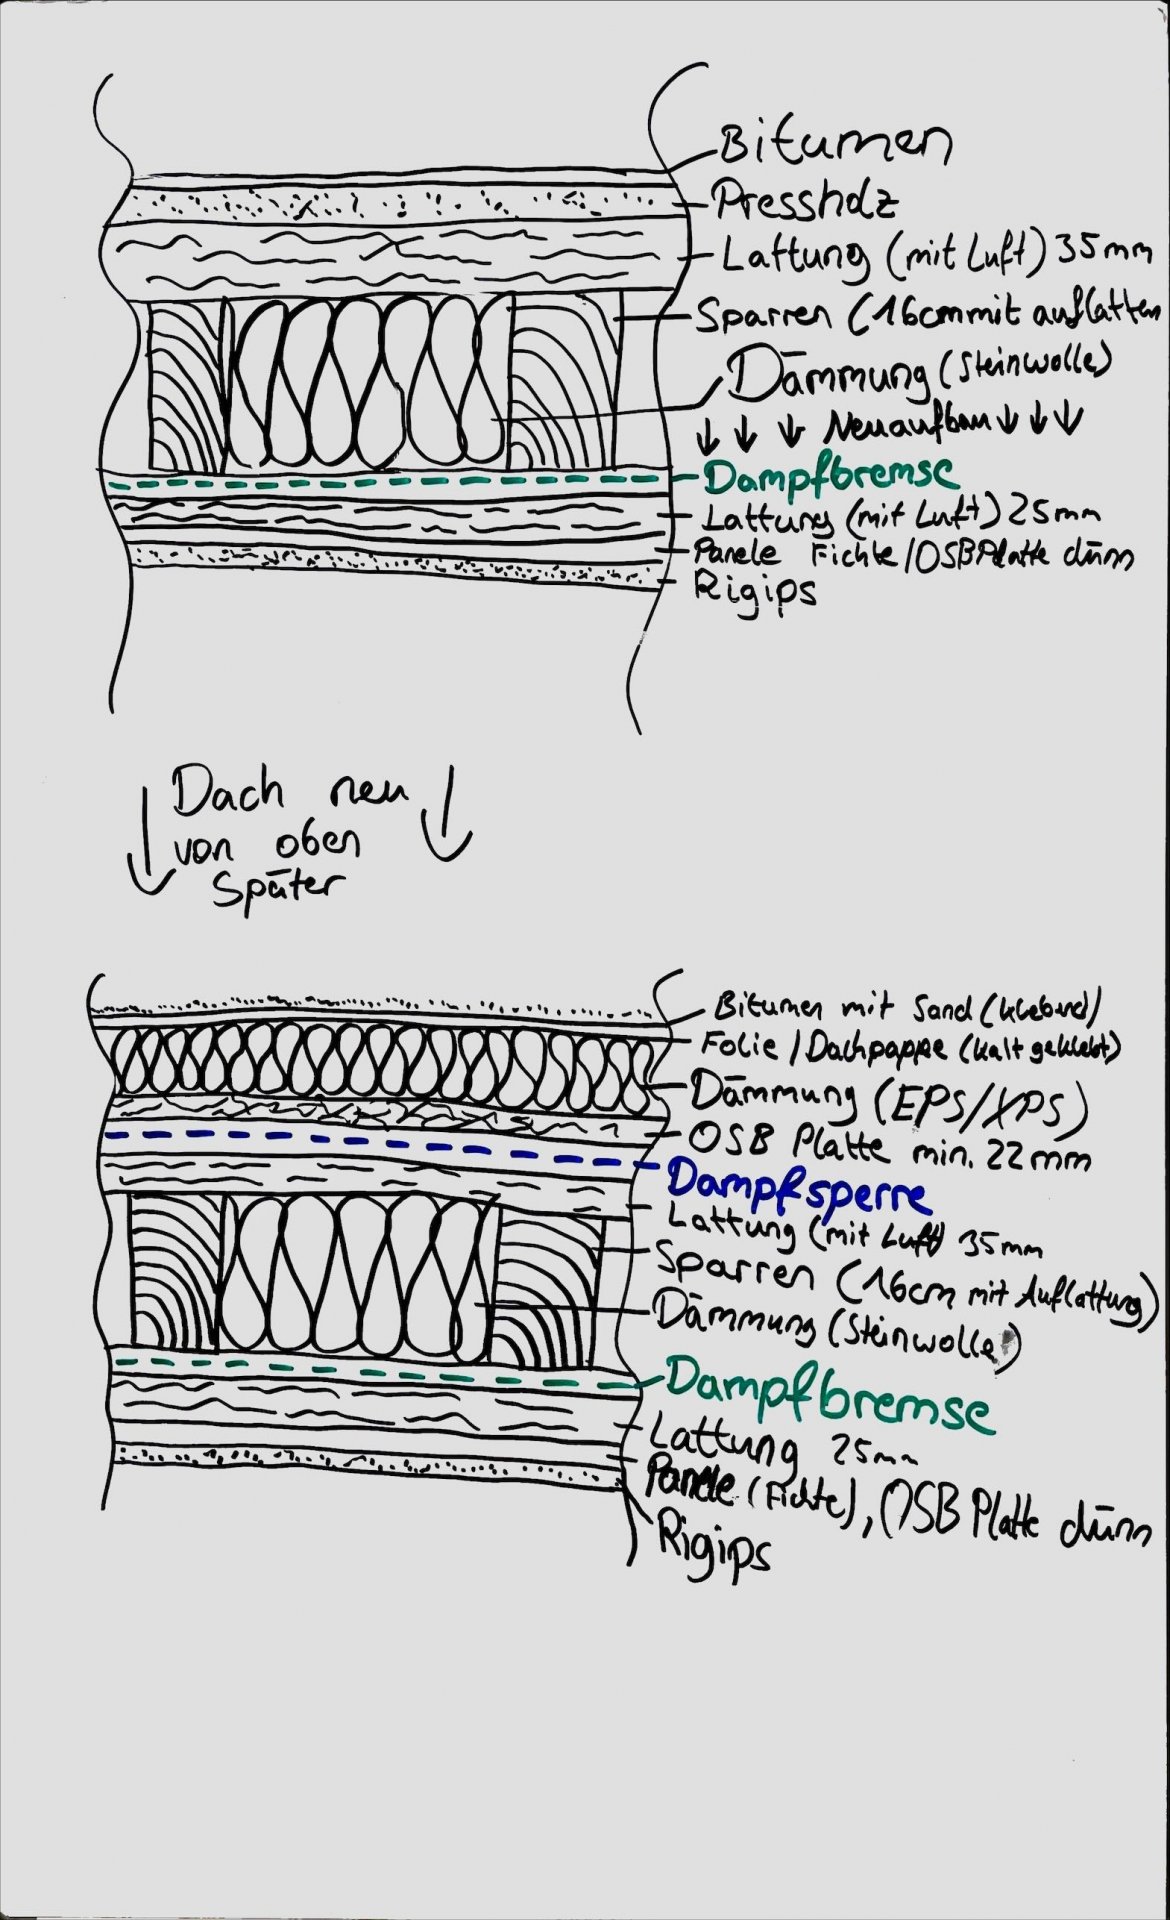 Bitumen
Pressholz
Lattung (mit Luft) 35mm
Sparren (16cm mit auflatten
Dämmung (Steinwolle)
↓ ↓ ↓ Neuaufbau ↓ ↓ ↓
Dampfbremse
Lattung (mit Luft) 25mm
Panele Fichte/OSB Platte dünn
Rigips
Dach neu
von oben
Später
Bitumen mit Sand (klebend)
Folie/Dachpappe (kalt geklebt)
Dämmung (EPS/XPS)
OSB Platte min. 22mm
Dampfsperre
Lattung (mit Luft) 35mm
Sparren (16cm mit Auflattung)
Dämmung (Steinwolle)
Dampfbremse
Lattung 25mm
Panele (Fichte), OSB Platte dünn
Rigips